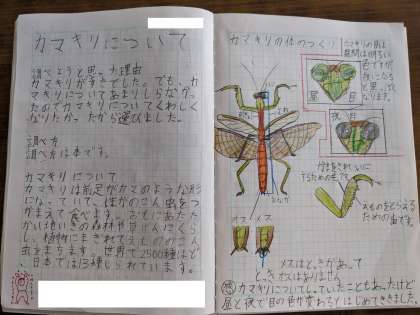 カマキリについて
調べようと思った理由
カマキリがすきでした。でも、カ
マキリについてあまりしらなかっ
たのでカマキリについてくわしく
なりたかったから選びました。
調べ方
調べ方は本です。
カマキリについて
カマキリは前足がカマのような形
になっていて、ほかのこん虫をつ
かまえて食べます。おもにあたた
かい地いきの森林や草げんにくら
し、植物にまぎれてえもののこん
虫をまちます。世界で2500種ほど
、日本では13種しられています。
カマキリの体のつくり
カマキリの目は
昼間は明るい
色ですが
夜になる
と黒っぽく
なります。
昼 目
夜 目
オス メス
えものをとらえる
ための歯です。
メスはとっきがあって
とっきオスはありません
カマキリについてしっていたこともあったけど
昼と夜で目の色が変わるとはじめてききました。